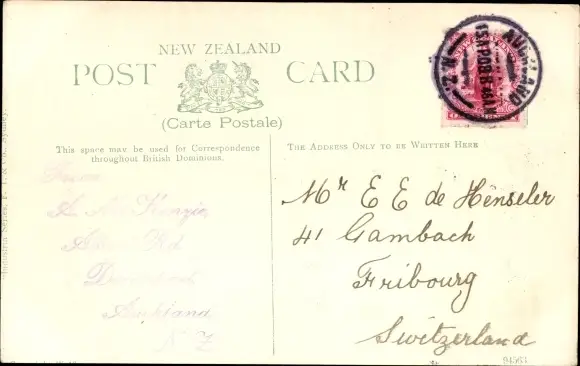 NEW ZEALAND
POST CARD
(Carte Postale)
This space may be used for Correspondence
throughout British Dominions.
THE ADDRESS ONLY TO BE WRITTEN HERE
From
A. McKenzie
Rd
Auckland
N Z
Mr E E de Henseler
41 Gambach
Fribourg
Switzerland
AUCKLAND
N.Z.
94563